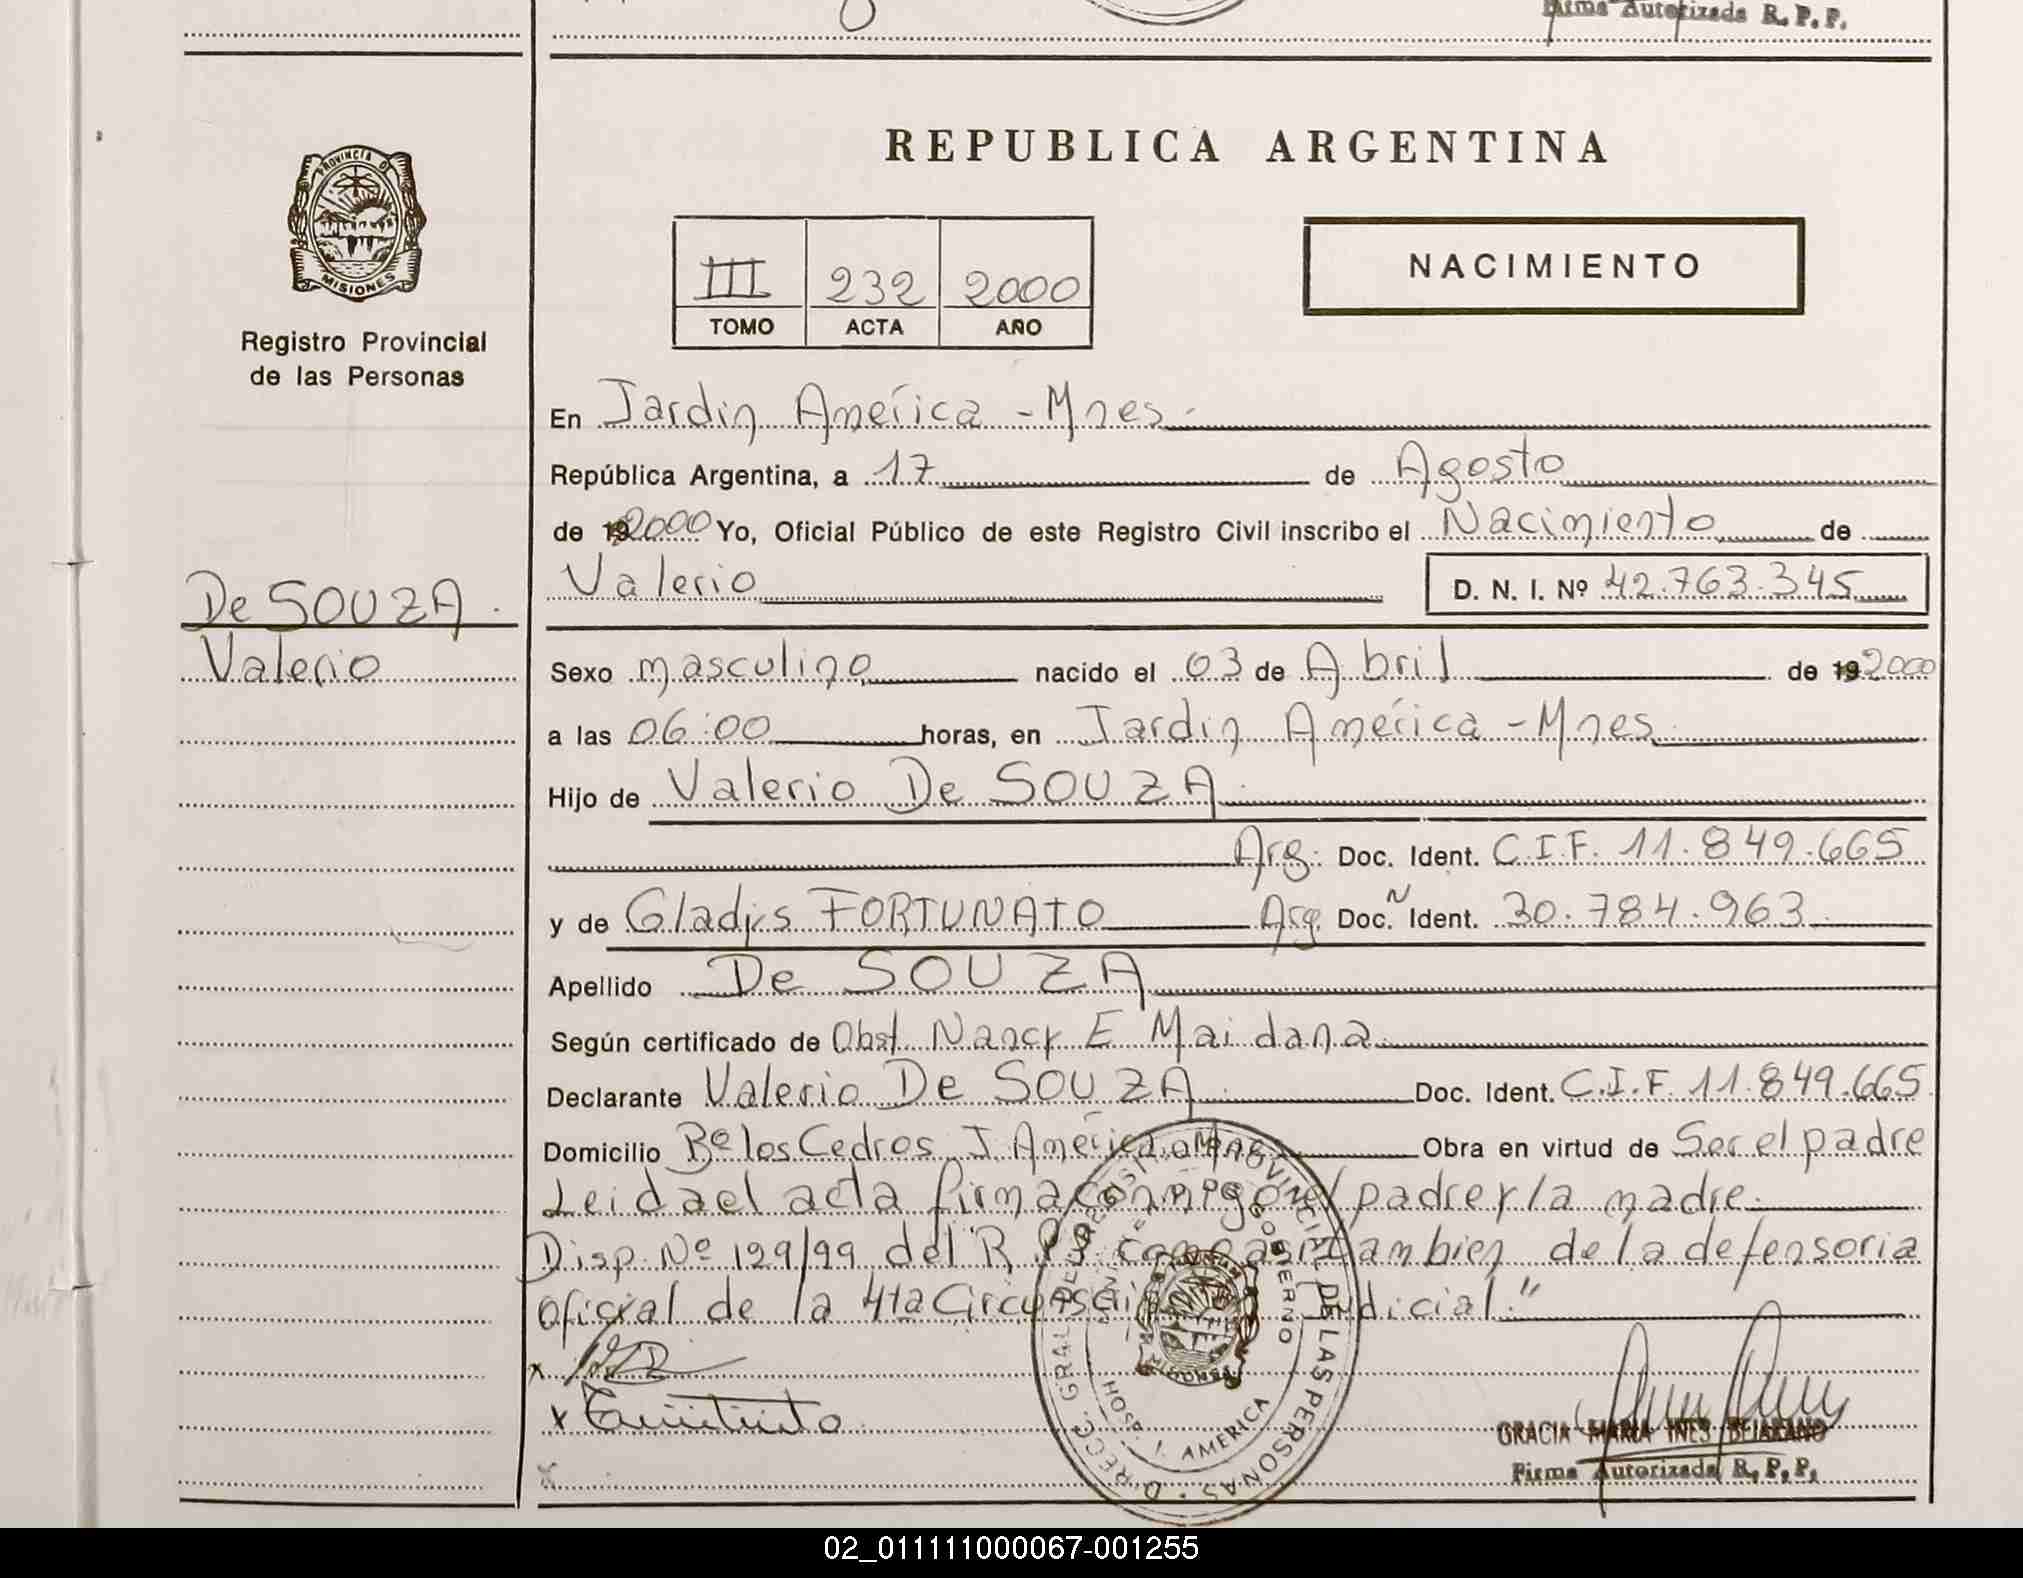 Firma Autorizada R. P. P.
PROVINCIA DE MISIONES
Registro Provincial
de las Personas
REPUBLICA ARGENTINA
III 232 2000
TOMO ACTA AÑO
NACIMIENTO
En Jardin América - Mnes.
República Argentina, a 17 de Agosto
de 192000 Yo, Oficial Público de este Registro Civil inscribo el Nacimiento de
Valerio D. N. I. Nº 42.763.345
De SOUZA.
Valerio
Sexo masculino nacido el 03 de Abril de 192000
a las 06:00 horas, en Jardin América - Mnes.
Hijo de Valerio De SOUZA.
Arg. Doc. Ident. C.I.F. 11.849.665
y de Gladys FORTUNATO Arg. Doc. N Ident. 30.784.963
Apellido De SOUZA
Según certificado de Obst. Nancy E Maidana.
Declarante Valerio De SOUZA. Doc. Ident. C.I.F. 11.849.665
Domicilio Bº los Cedros J. América Mnes Obra en virtud de Ser el padre
Leida el acta firma conmigo el padre y la madre.
Disp. Nº 129/99 del "R.P.P. como asi tambien de la defensoria
oficial de la 4ta Circunscripción Judicial."
x
x
DIRECC. GRAL. DEL REGISTRO PROVINCIAL DE LAS PERSONAS
GOBIERNO
AMERICA
GRACIA MARIA INES BEJARANO
Firma Autorizada R. P. P.
02_011111000067-001255